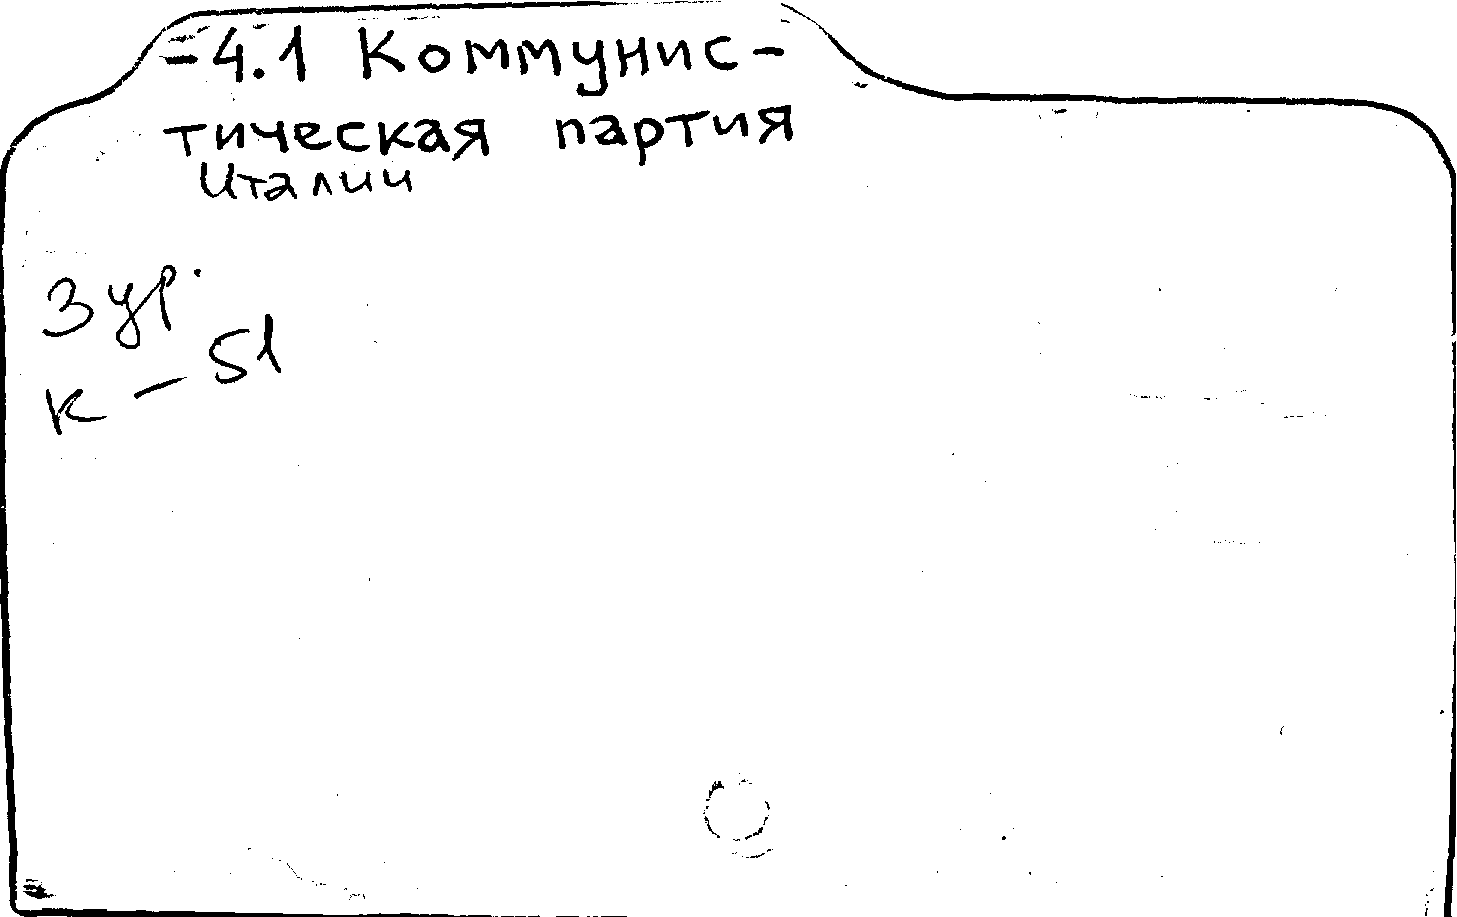 -4.1 Коммунис-
тическая партия
Италии
3 ур.
к - 51